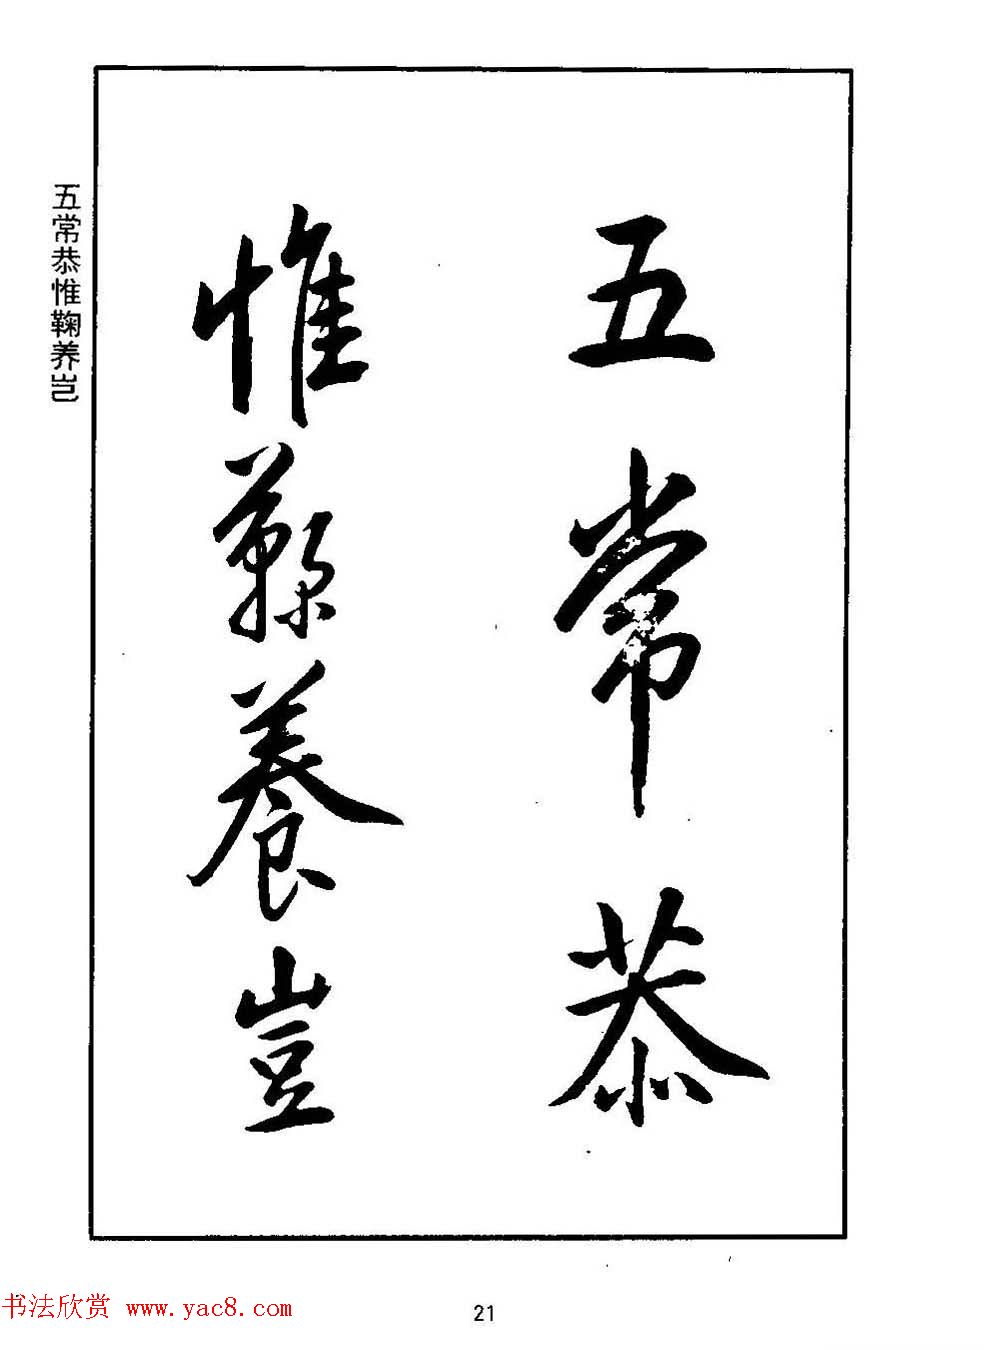 五常恭
惟鞠養豈
五常恭惟鞠养岂
书法欣赏 www.yac8.com
21